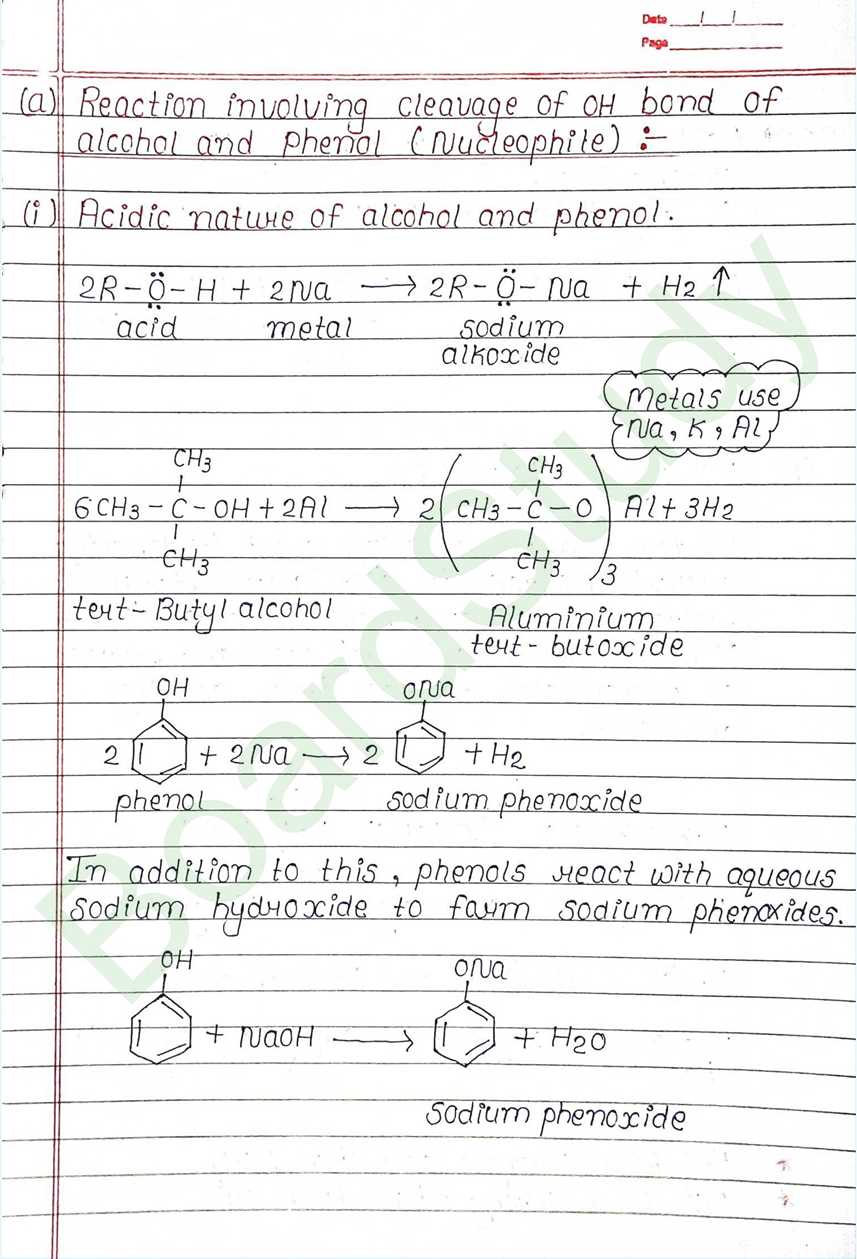 Date / /
Page
(a) Reaction involving cleavage of OH bond of
alcohol and phenol (Nucleophile) :-
(i) Acidic nature of alcohol and phenol.
2R-Ö-H + 2Na → 2R-Ö-Na + H2 ↑
acid metal sodium
alkoxide
Metals use
Na, K, Al
CH3 CH3
6CH3-C-OH + 2Al → 2(CH3-C-O)3 Al + 3H2
CH3 CH3
tert-Butyl alcohol Aluminium
tert-butoxide
OH ONa
2 + 2Na → 2 + H2
phenol sodium phenoxide
In addition to this, phenols react with aqueous
sodium hydroxide to form sodium phenoxides.
OH ONa
+ NaOH → + H2O
Sodium phenoxide
BoardStudy